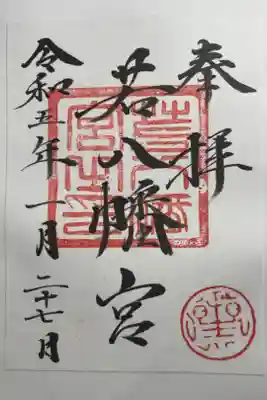 奉拝
若八幡宮
令和五年一月二十七日